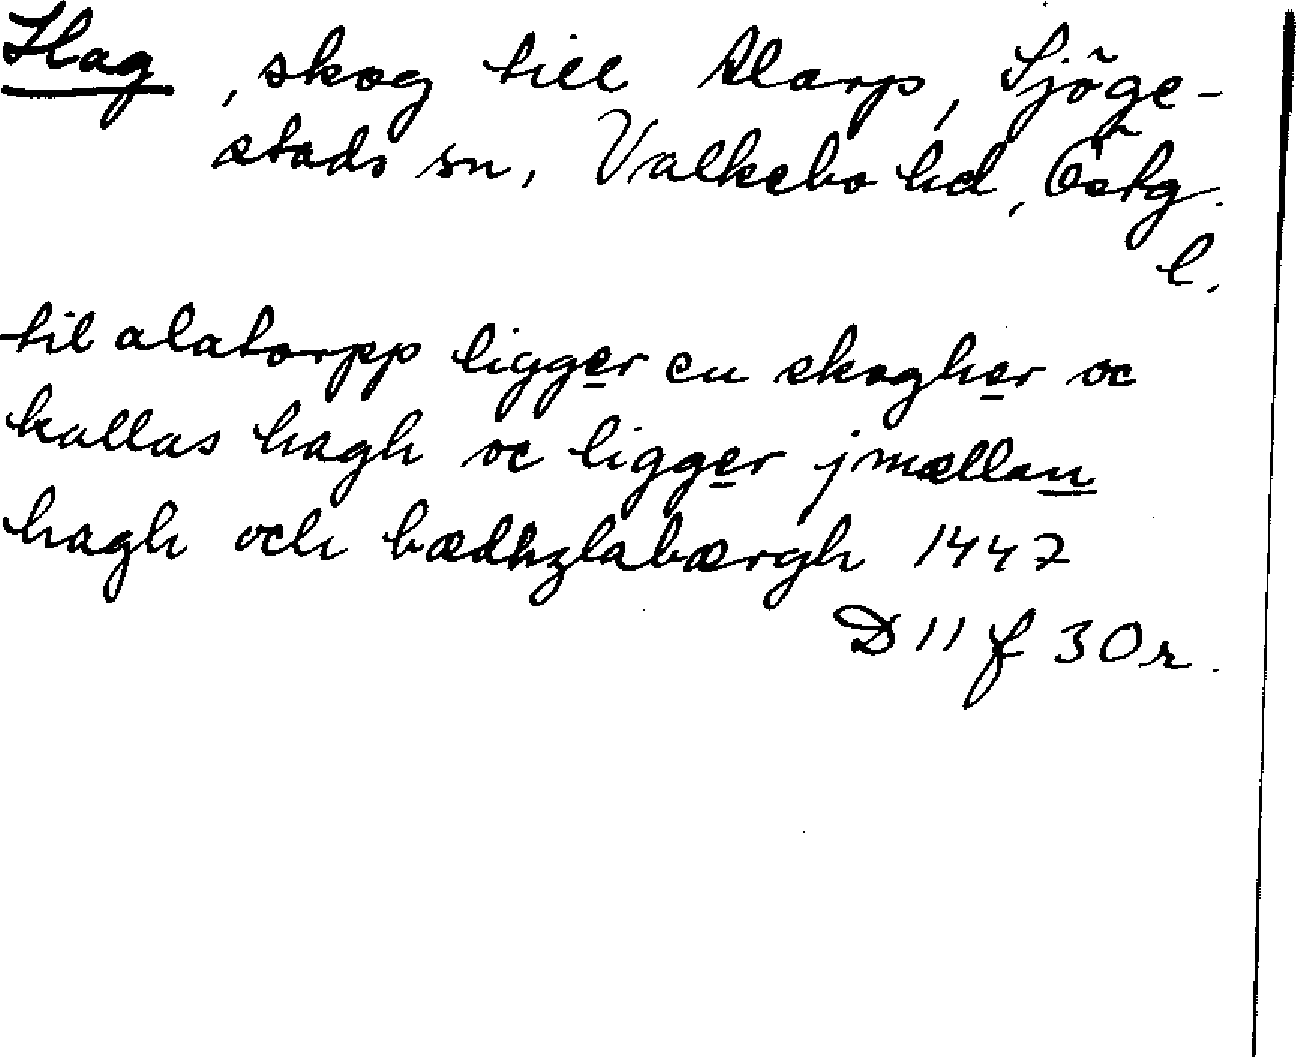 Hag, skog till Alarp, Sjöge-
stads sn, Valkebo hd, Östg.
l.
til alatorpp ligger en skogher oc
kallas hagh oc ligger jmællan
hagh och bædhzlabærgh 1447
D 11 f 30 r.